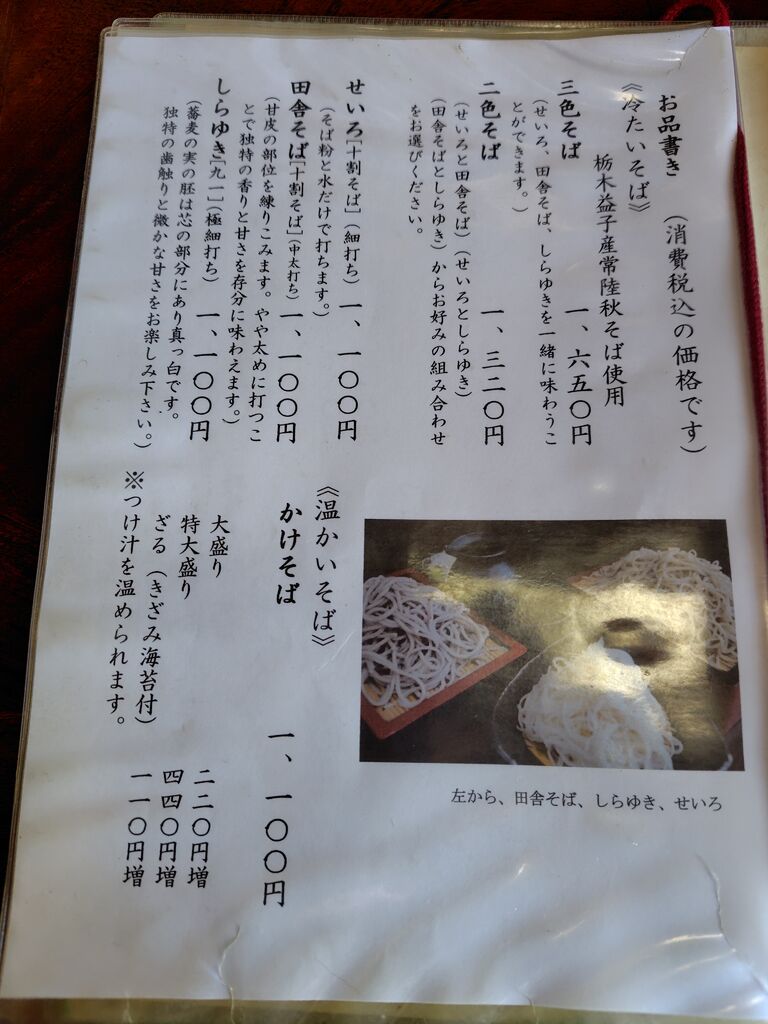 お品書き　(消費税込の価格です)
《冷たいそば》
栃木益子産常陸秋そば使用
三色そば　一、六五〇円
(せいろ、田舎そば、しらゆきを一緒に味わうこ
とができます。)
二色そば　一、三二〇円
(せいろと田舎そば)(せいろとしらゆき)
(田舎そばとしらゆき)からお好みの組み合わせ
をお選びください。
せいろ[十割そば](細打ち)一、一〇〇円
(そば粉と水だけで打ちます。)
田舎そば[十割そば](中太打ち)一、一〇〇円
(甘皮の部位を練りこみます。やや太めに打つこ
とで独特の香りと甘さを存分に味わえます。)
しらゆき[九一](極細打ち)一、一〇〇円
(蕎麦の実の胚は芯の部分にあり真っ白です。
独特の歯触りと微かな甘さをお楽しみ下さい。)
左から、田舎そば、しらゆき、せいろ
《温かいそば》
かけそば　一、一〇〇円
大盛り　二二〇円増
特大盛り　四四〇円増
ざる(きざみ海苔付)　一一〇円増
※つけ汁を温められます。